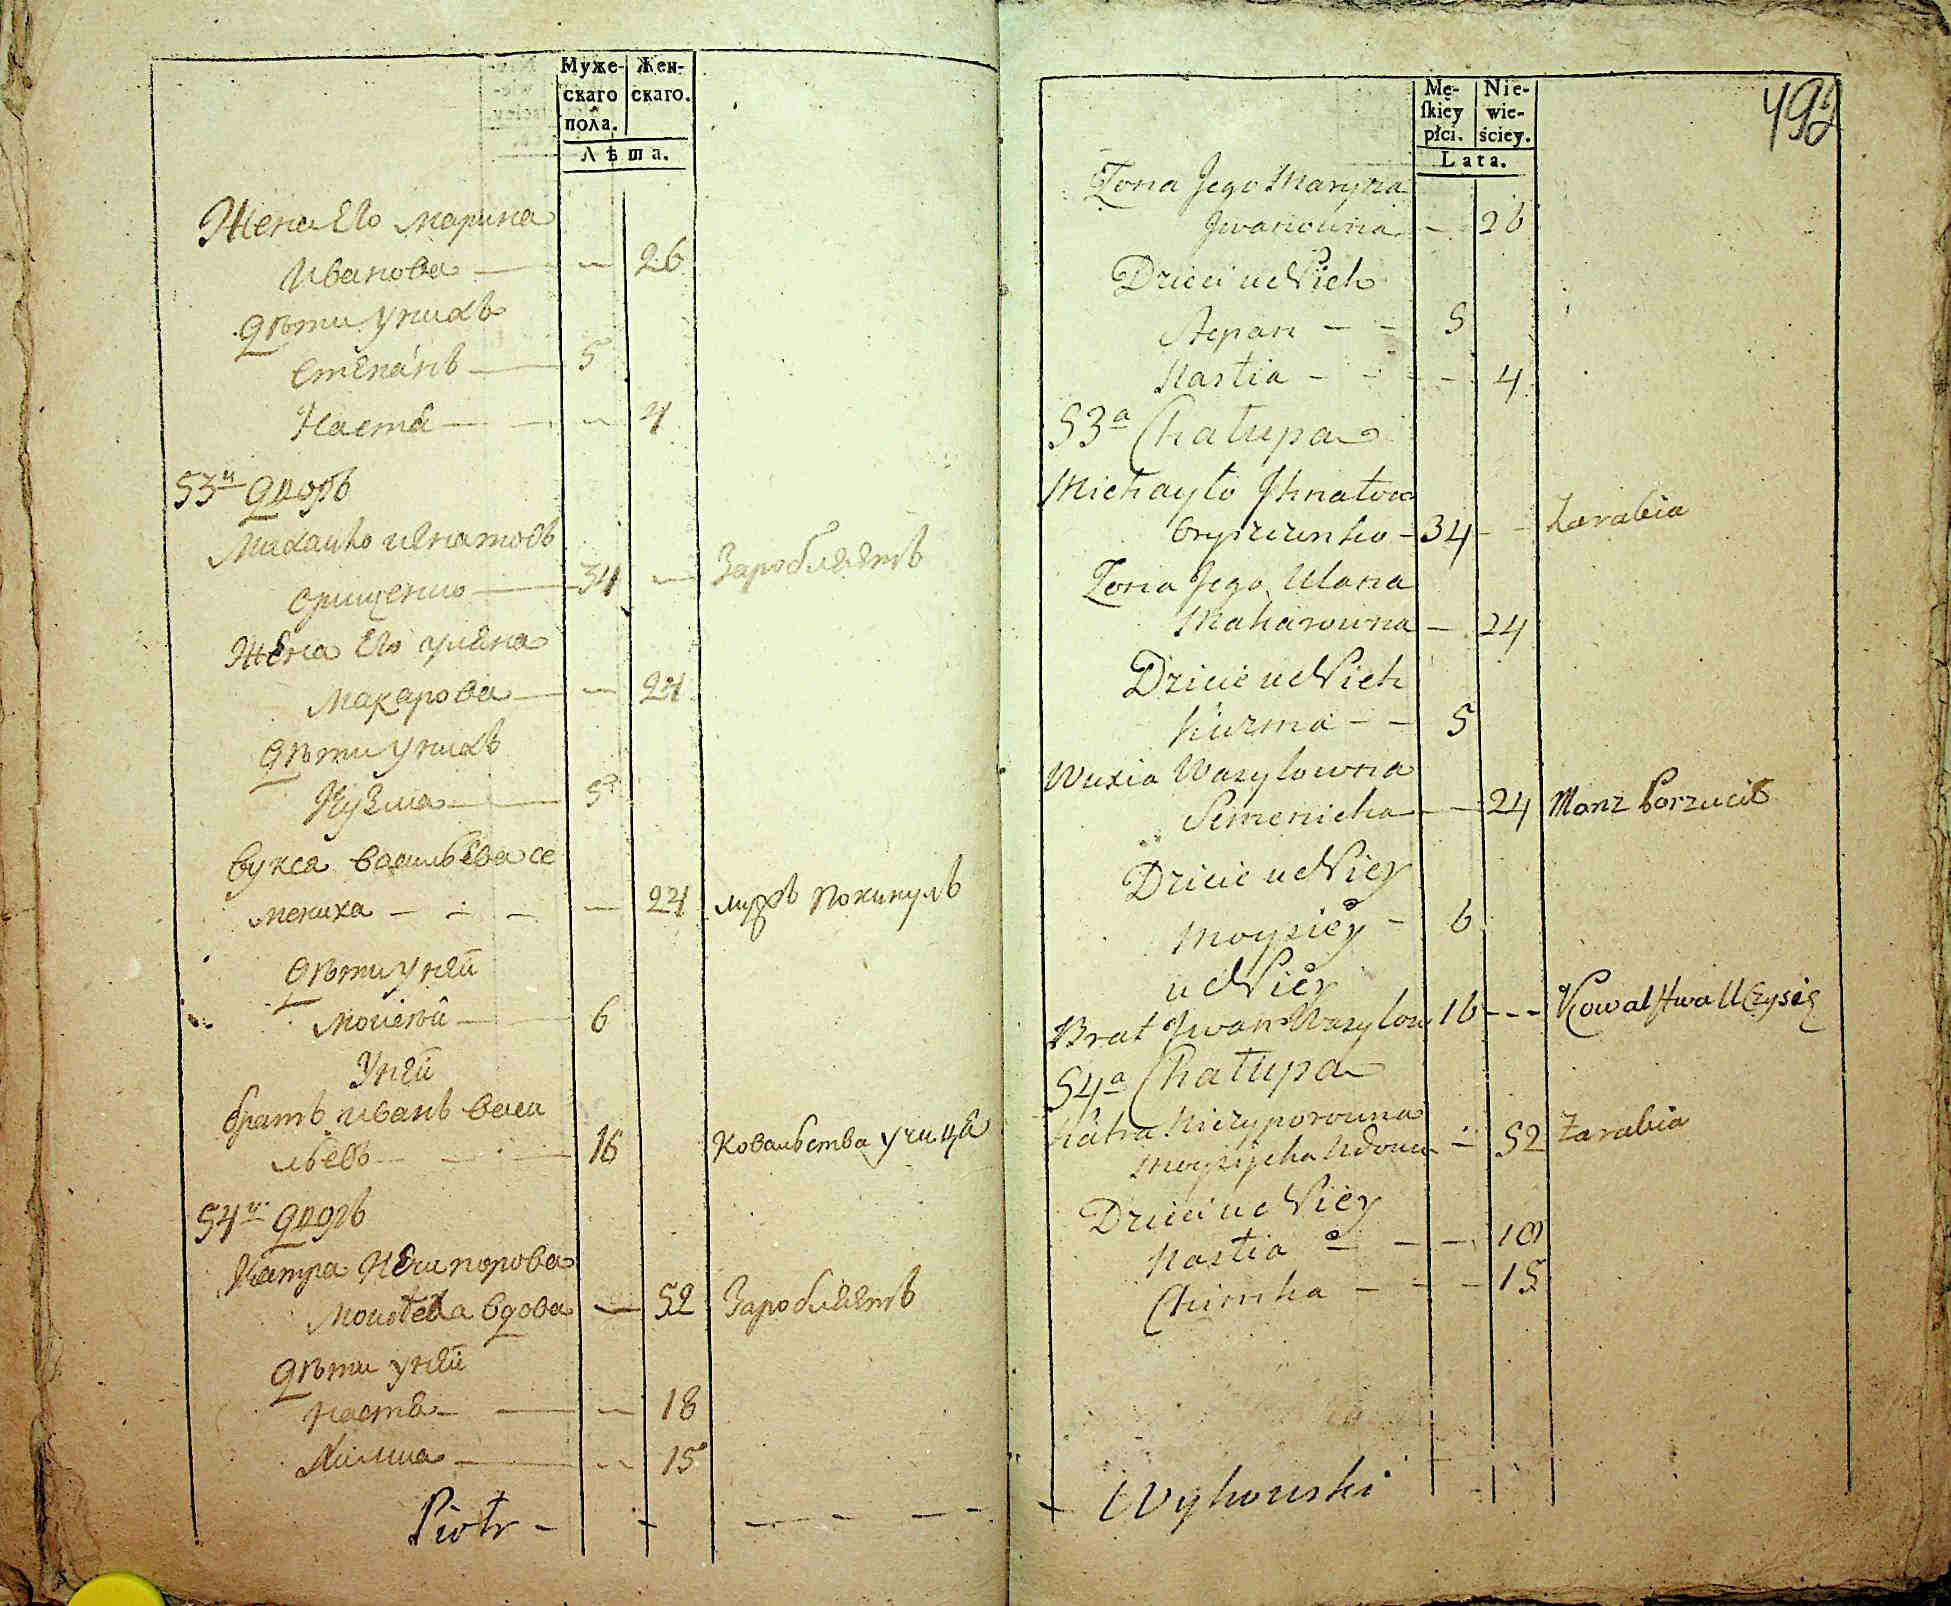 Муже-
скаго
пола.
Жен-
скаго.
Лѣта.
Жена Его Марина
Иванова — — 26
Дѣти у нихъ
Степанъ — 5
Настя — — 4
53й дворъ
Михайло Игнатовъ
Грищенко — 34 — Заробляетъ
Жена Его Уляна
Макарова — — 24
Дѣти у нихъ
Кузма — 5
Вукса Васильева Се
мениха — — — 24 мужъ Покинулъ
Дѣти у ней
Моисей — 6
У ней
братъ Иванъ Васи
льевъ — — 16 Ковальства учица
54й дворъ
Катра Нечипорова
вдова — 52 Заробляетъ
Дѣти у ней
Настя — — 18
Химка — — 15
Piotr — — — — — —
Mę-
skiey
płci.
Nie-
wie-
ściey.
Lata.
Żona Jego Maryna
Jwanowna — 26
Dzieci u Nich
Stepan — — 5
Nastia — — — 4
53a Chałupa
Michayło Jhnatow
Gryszczenko — 34 — Zarabia
Żona Jego Ulana
Makarowna — 24
Dzieie u Nich
Kuzma — — 5
Wuxia Wasylowna
Semenicha — — 24 Monz Porzucił
Dzieie u Niey
Moysiey — 6
u Niey
Brat Jwan Wasylow 16 — — — Kowalstwa Uczy się
54a Chałupa
Katra Niczyporowna
Wdowa — 52 Zarabia
Dzieci u Niey
Nastia — — — 18
Chimka — — — 15
— Wyhowski